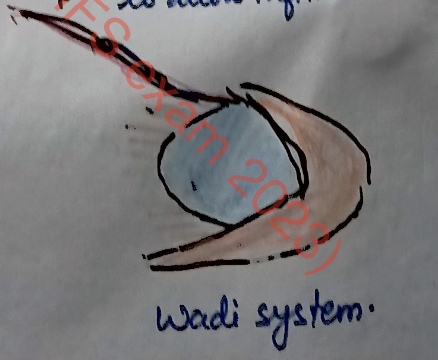 FS exam 2023)
Wadi system.